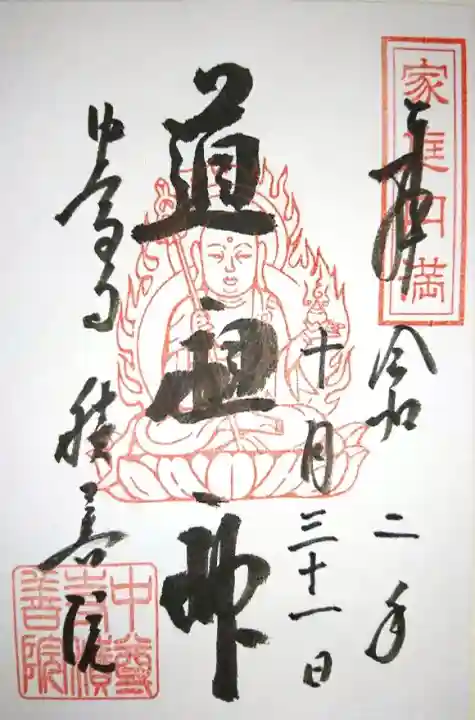 家庭円満
奉拝 令和二年
十月三十一日
道祖神
中尊寺 積善院
中尊
寺積
善院